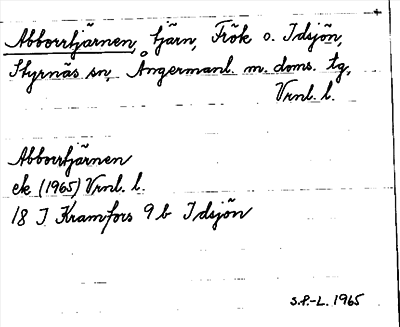 Abborrtjärnen, tjärn, Frök o. Idsjön,
Styrnäs sn, Ångermanl. m. doms. tg,
Vrnl. l.
Abborrtjärnen
ek (1965) Vrnl. l.
18 I Kramfors 9 b Idsjön
S.P.-L. 1965